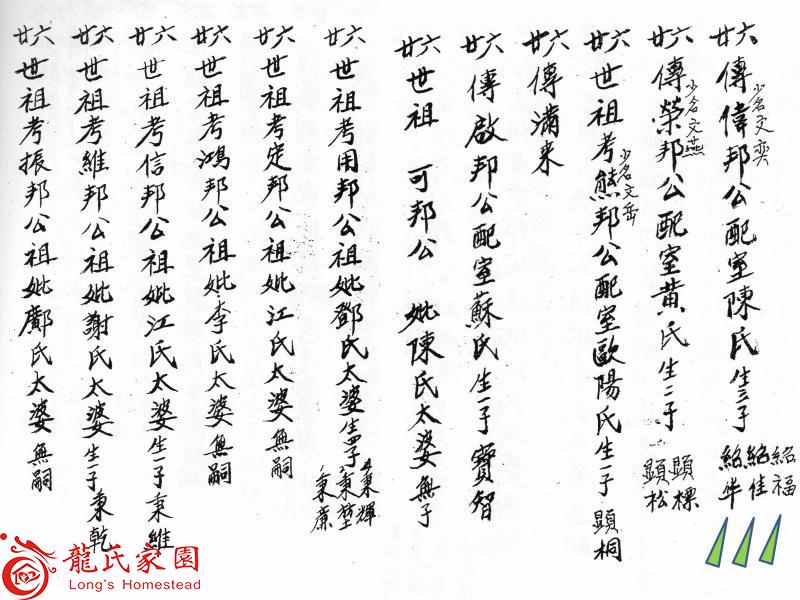 廿六傳偉邦公配室陳氏生三子
少名文奕
紹福
紹佳
紹华
廿六傳榮邦公配室黄氏生二子
少名文燕
顕棵
顕松
廿六世祖考熊邦公配室歐陽氏生一子顕桐
少名文岳
廿六傳滿来
廿六傳啟邦公配室蘇氏生一子寶智
廿六世祖 可邦公 妣陳氏太婆無子
廿六世祖考用邦公祖妣鄧氏太婆生四子
秉輝
秉廉
廿六世祖考定邦公祖妣江氏太婆無嗣
廿六世祖考鴻邦公祖妣李氏太婆無嗣
廿六世祖考信邦公祖妣江氏太婆生一子秉維
廿六世祖考維邦公祖妣謝氏太婆生一子秉乾
廿六世祖考振邦公祖妣鄺氏太婆無嗣
龍氏家園
Long's Homestead